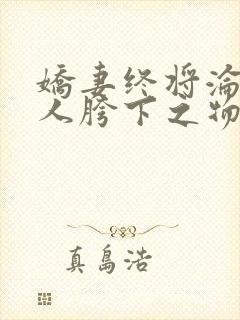 嬌妻终将淪
人胯下之物
真島浩